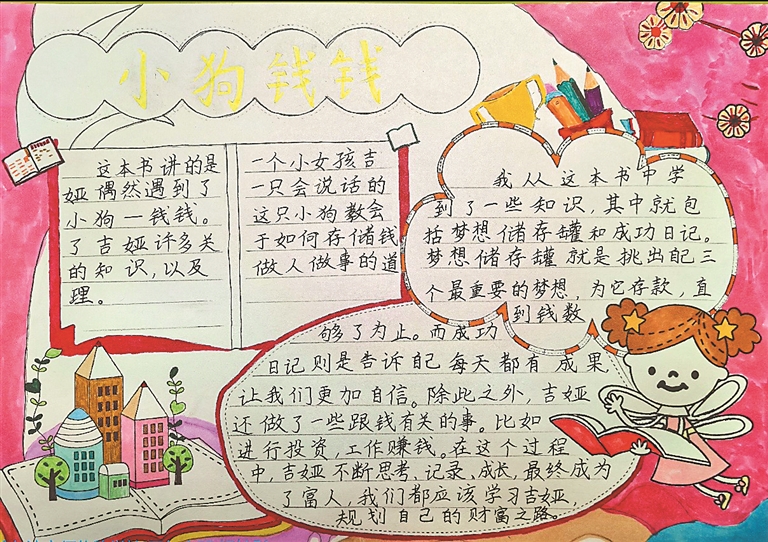 小狗钱钱
这本书讲的是一个小女孩吉
娅偶然遇到了一只会说话的
小狗—钱钱。这只小狗教会
了吉娅许多关于如何存储钱
的知识，以及做人做事的道
理。
我从这本书中学
到了一些知识，其中就包
括梦想储存罐和成功日记。
梦想储存罐就是挑出自己三
个最重要的梦想，为它存款，直
到钱数
够了为止。而成功
日记则是告诉自己每天都有成果，
让我们更加自信。除此之外，吉娅
还做了一些跟钱有关的事。比如
进行投资，工作赚钱。在这个过程
中，吉娅不断思考、记录、成长，最终成为
了富人，我们都应该学习吉娅，
规划自己的财富之路。